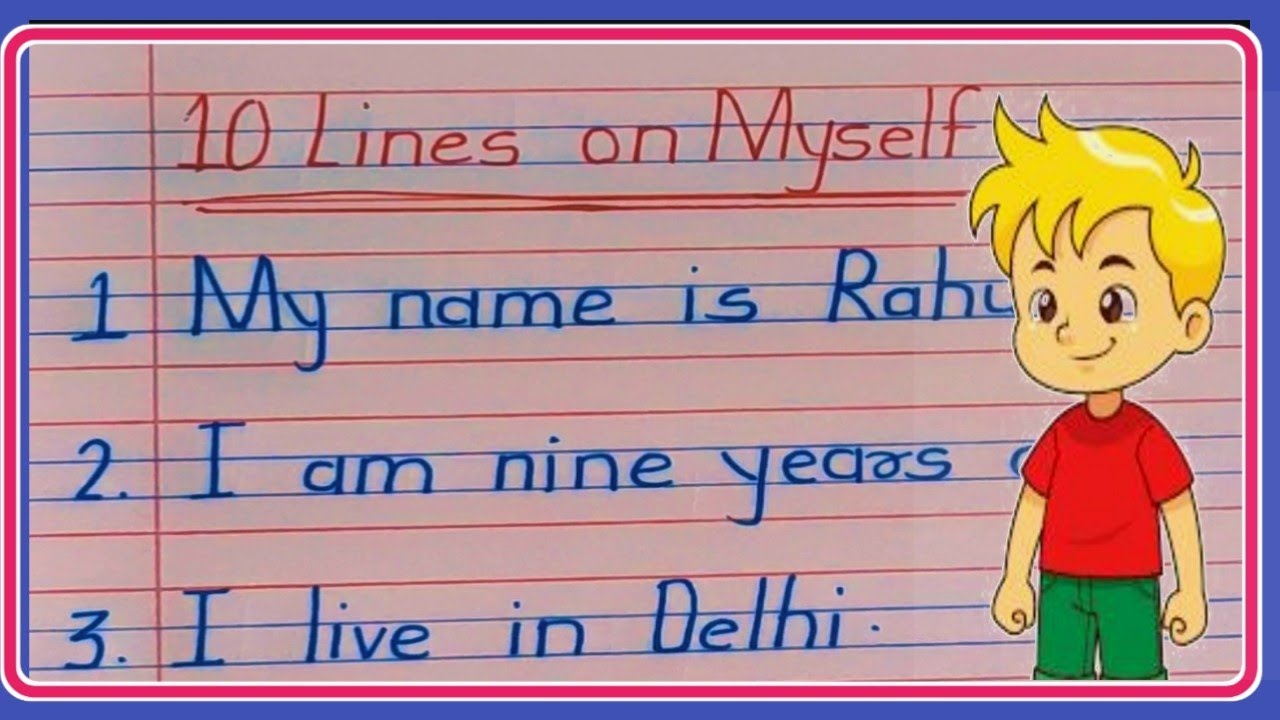 10 Lines on Myself
1 My name is Rahu
2. I am nine years
3. I live in Delhi.